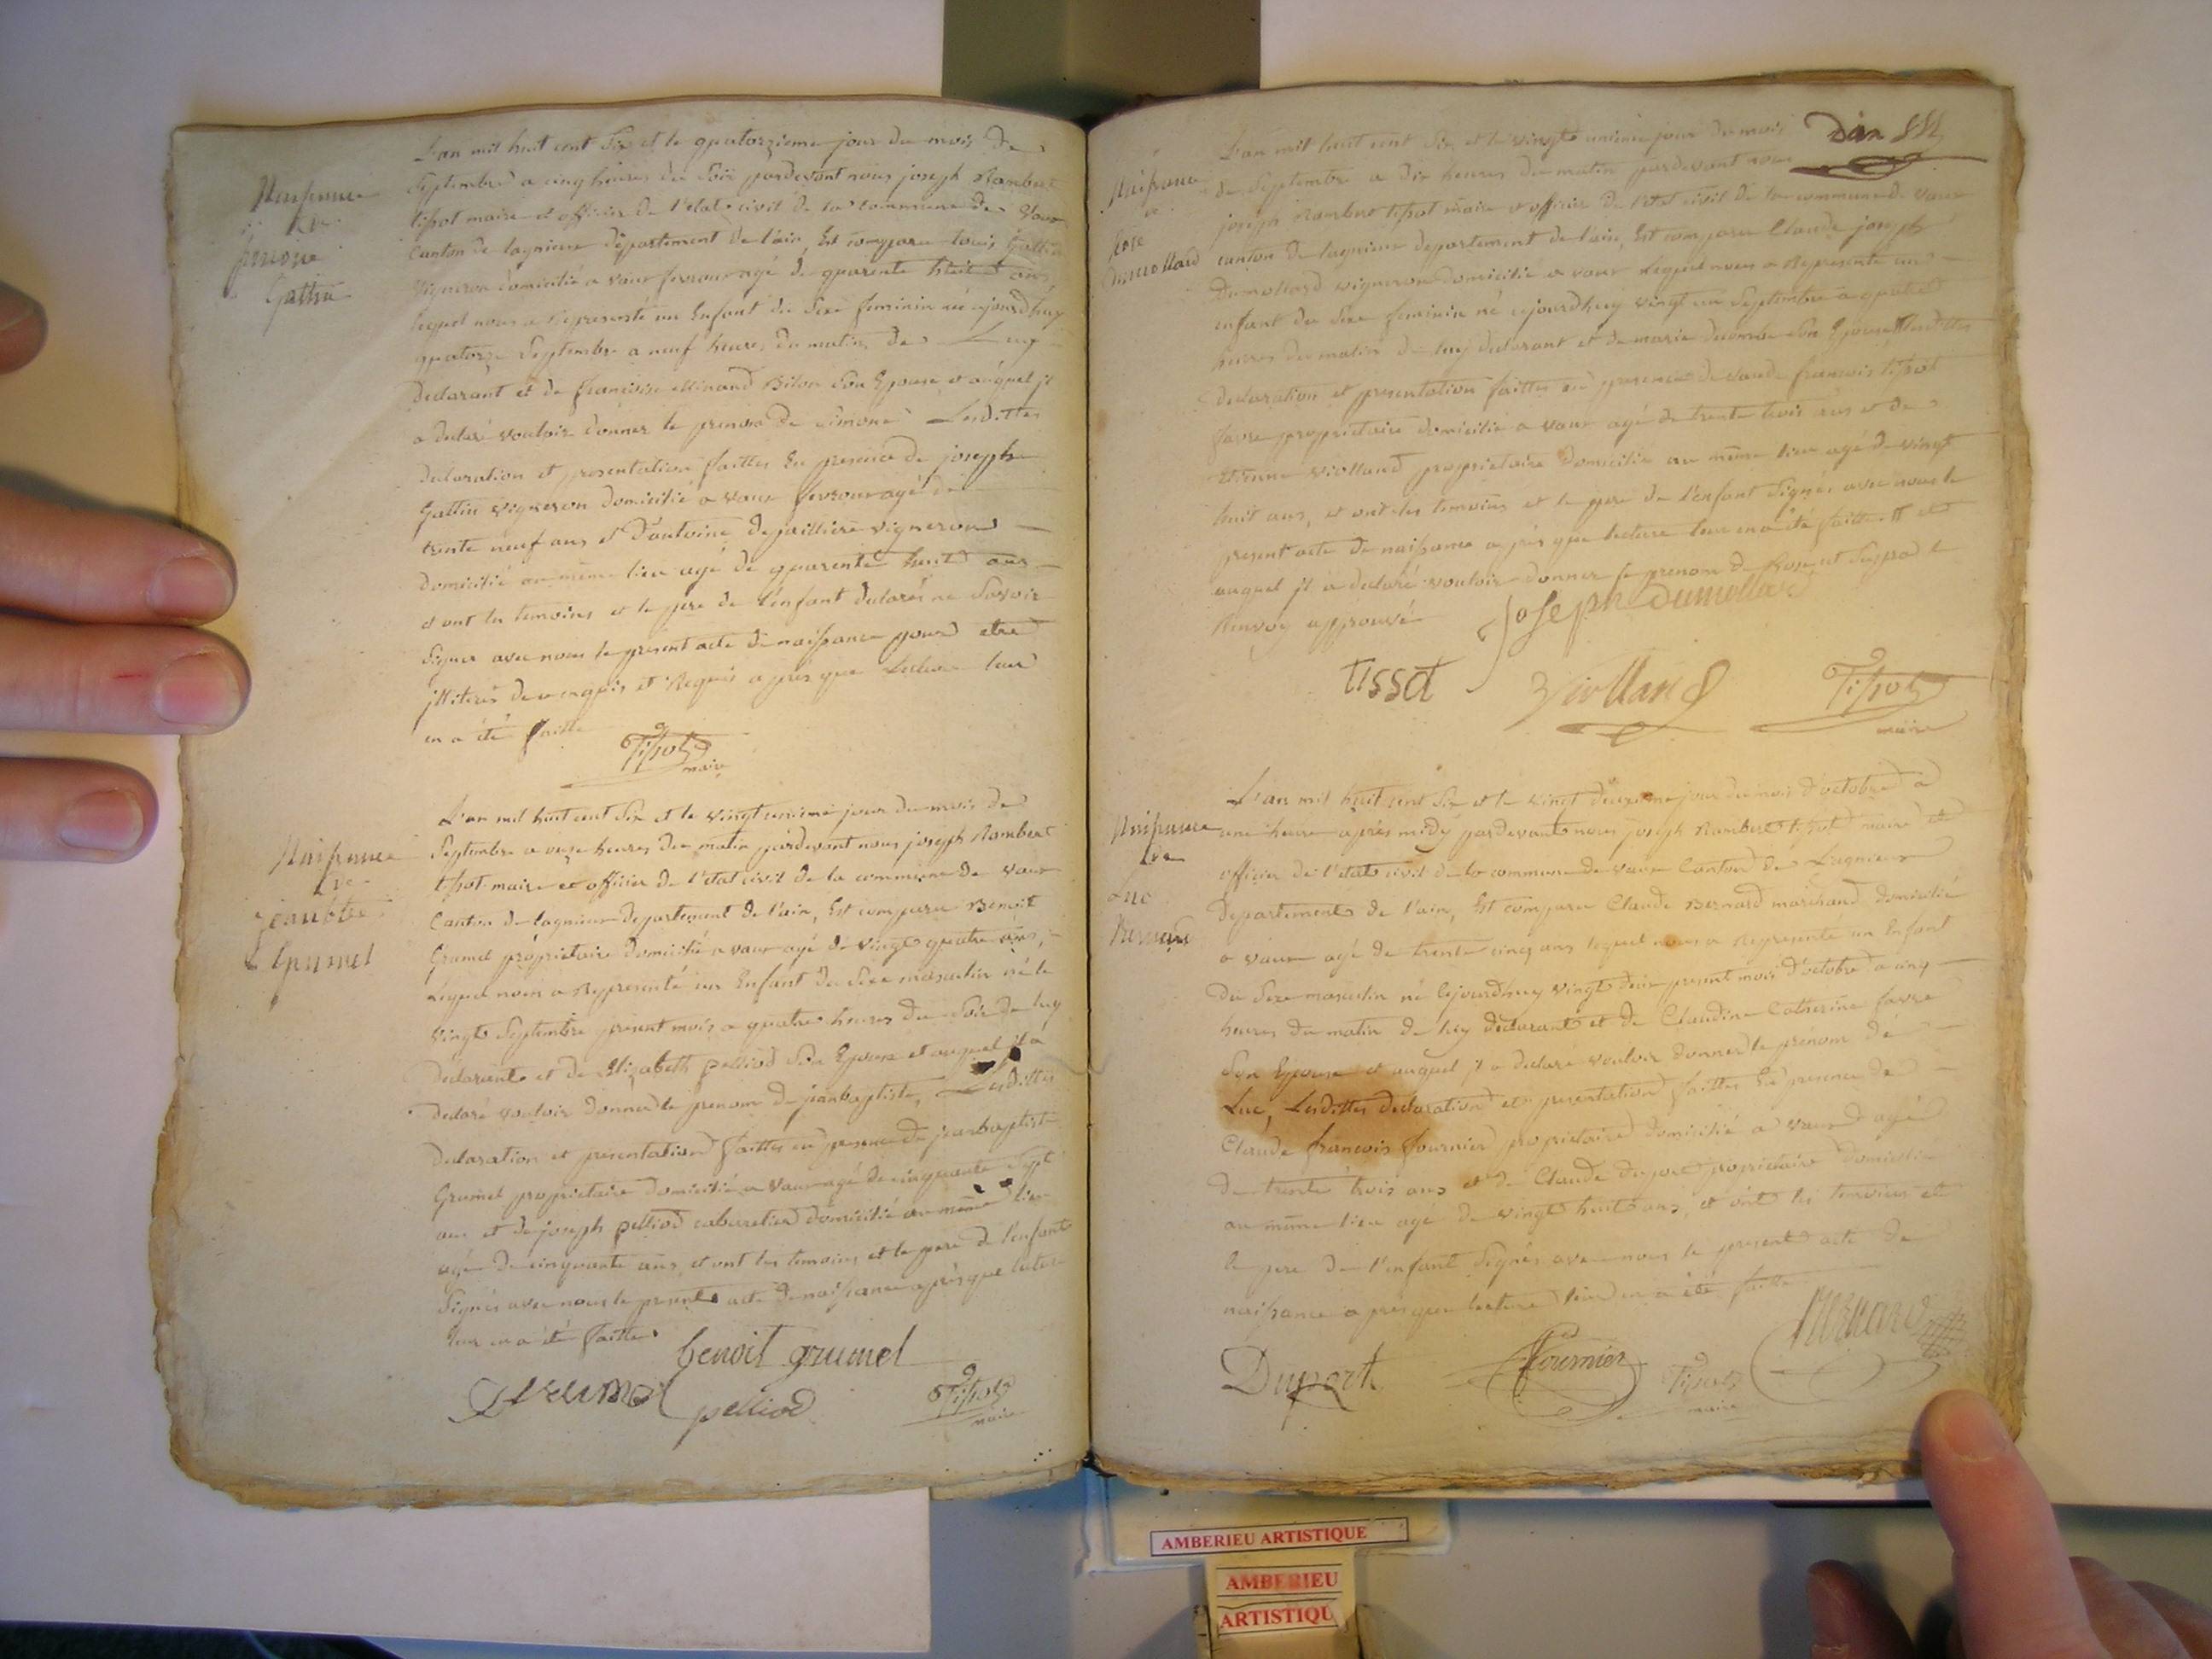 Naissance
de
simone
Gattin
L'an mil huit cent Six et le quatorzieme jour du mois de
Septembre a cinq heures du Soir pardevant nous joseph Rambert
tissot maire et officier de l'etat civil de la commune de Vaux
Canton de lagnieux departement de l'ain, Est comparu louis Gattin
Vigneron domicilié a vaux fevroux agé de quarente huit ans,
lequel nous a Représenté un Enfant du Sexe feminin né cejourdhuy
quatorze Septembre a neuf heures du matin, de Luy
declarant et de francoise Son Epouse et auquel jl
a declaré vouloir donner le prenom de Simone Lesdittes
declaration et presentation faittes En presence de joseph
Gattin vigneron domicilié a vaux fevroux agé de
trente neuf ans et D'antoine dejaillière vigneron
domicilié au même lieu agé de quarente huit ans
et ont les temoins et le pere de l'enfant declarés ne Savoir
Signer avec nous le present acte de naissance pour etre
jlliterés de ce enquis et Requis a pres que Lecture leur
en a été faitte
Tissot
maire
Naissance
de
jeanbte
Grumel
L'an mil huit cent Six et le vingt unieme jour du mois de
Septembre a onze heures du matin pardevant nous joseph Rambert
tissot maire et officier de l'etat civil de la commune de vaux
Canton de lagnieux departement de l'ain, Est comparu Benoit
Grumel propriétaire domicilié a vaux agé de vingt quatre ans,
Lequel nous a Représenté un Enfant du Sexe masculin né le
vingt Septembre present mois a quatre heures du Soir de luy
declarant et de Elizabeth pelliod Son Epouse et auquel jl a
declaré vouloir donner le prenom de jeanbaptiste, Lesdittes
declaration et presentation faittes en presence de jeanbaptiste
Grumel propriétaire domicilié a vaux agé de cinquante Sept
ans et de joseph pelliod cabaretier domicilié au même lieu
agé de cinquante ans, et ont les temoins et le pere de l'enfant
Signés avec nous le present acte de naissance a près que lecture
leur en a été faitte
benoit grumel
pelliod
Tissot
maire
Dix
Naissance
de
Rose
Dumollard
L'an mil huit cent Six et le vingt unieme jour du mois
de Septembre a dix heures du matin pardevant nous
joseph Rambert tissot maire et officier de l'etat civil de la commune de vaux
canton de lagnieux departement de l'ain, Est comparu Claude joseph
Dumollard vigneron domicilié a vaux lequel nous a Représenté un
enfant du Sexe feminin né cejourdhuy vingt un Septembre a quatre
heures du matin de luy declarant et de marie Son Epouse Lesdittes
declaration et presentation faittes en presence de claude francois tissot
favre propriétaire domicilié a vaux agé de trente trois ans et de
Etienne Violland propriétaire domicilié au même lieu agé de vingt
huit ans, et ont les temoins et le pere de l'enfant Signés avec nous le
present acte de naissance a près que lecture leur en a été faitte et
auquel jl a declaré vouloir donner le prenom de Rose
Renvoy approuvé
joseph Dumollard
tissot
Violland
Tissot
maire
Naissance
de
Luc
Bernard
L'an mil huit cent Six et le vingt deuxieme jour du mois d'octobre a
une heure après midy pardevant nous joseph Rambert tissot maire et
officier de l'etat civil de la commune de vaux Canton de Lagnieux
departement de l'ain, Est comparu Claude Bernard marchand domicilié
a vaux agé de trente cinq ans lequel nous a Représenté un Enfant
du Sexe masculin né Cejourdhuy vingt deux present mois d'octobre a cinq
heures du matin de luy declarant et de Claudine Catherine favre
Son Epouse et auquel jl a declaré vouloir donner le prénom de
Luc, Lesdittes declaration et presentation faittes En presence de
Claude francois fournier propriétaire domicilié a vaux agé
de trente trois ans et de Claude duport propriétaire domicilié
au même lieu agé de vingt huit ans, et ont les temoins et
le pere de l'enfant Signés avec nous le present acte de
naissance a près que lecture leur en a été faitte
Duport
fournier
Tissot
maire
Bernard
AMBERIEU ARTISTIQUE
AMBERIEU
ARTISTIQU